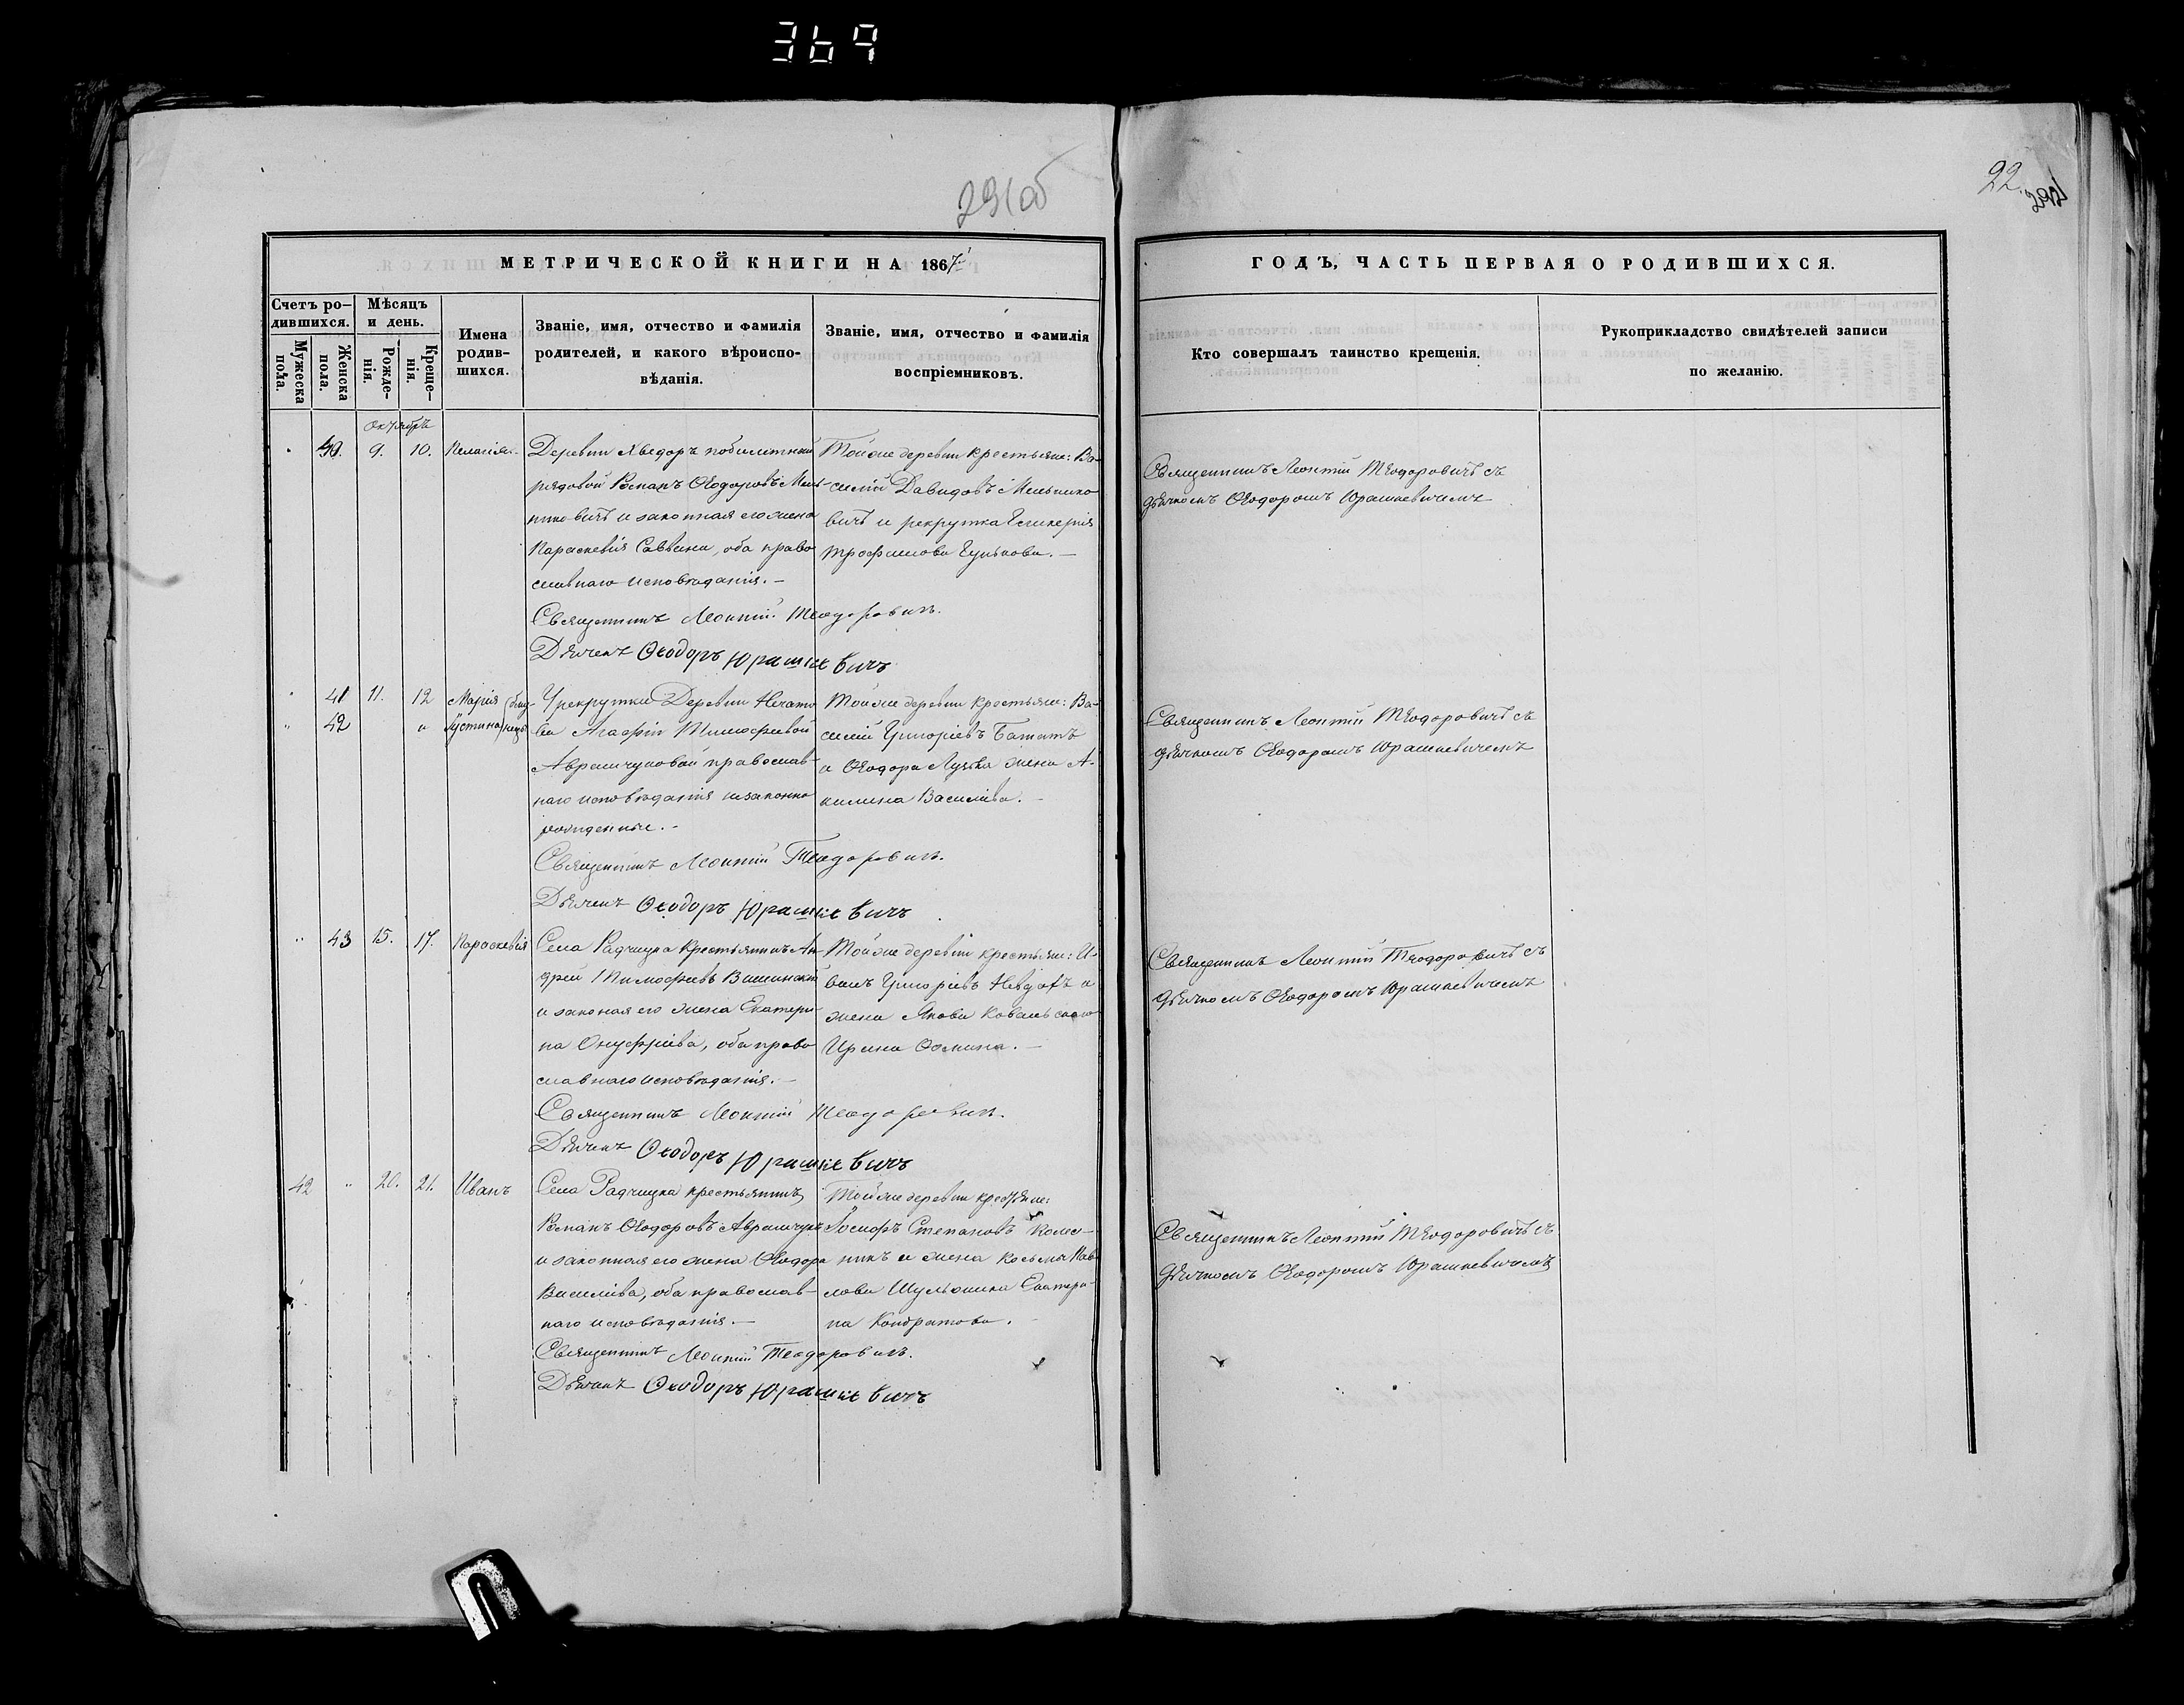 369
291об
22.
292
МЕТРИЧЕСКОЙ КНИГИ НА 1867
ГОДЪ, ЧАСТЬ ПЕРВАЯ О РОДИВШИХСЯ.
Счетъ ро-
дившихся.
Мужеска
пола.
Женска
пола.
Мѣсяцъ
и день.
Рожде-
нія.
Креще-
нія.
Имена
родив-
шихся.
Званіе, имя, отчество и фамилія
родителей, и какого вѣроиспо-
вѣданія.
Званіе, имя, отчество и фамилія
воспріемниковъ.
Кто совершалъ таинство крещенія.
Рукоприкладство свидѣтелей записи
по желанію.
Октябрь
40. 9. 10. Пелагія
Деревни побилетный
рядовой Романъ Ѳеодоровъ Мель-
никовичъ и законная его жена
Параскевія Саввина, оба право
славнаго исповѣданія.
Священникъ Леонтій Теодоровичъ.
Дьячекъ Ѳеодоръ Юрашкевичъ
Тойже деревни крестьяне: Ва-
силій Давидовъ Мельнико
вичъ и рекрутка Гликерія
Трофимова
Священникъ Леонтій Теодоровичъ съ
дьячкомъ Ѳеодоромъ Юрашкевичемъ
41 11. 12 Марія (близ-
42 " Іустина) нецы
У рекрутки Деревни
Агафіи Тимофѣевой
Аврамчуковой православ-
наго исповѣданія незаконно
рожденные.
Священникъ Леонтій Теодоровичъ.
Дьячекъ Ѳеодоръ Юрашкевичъ
Тойже деревни крестьяне: Ва-
силій Григоріевъ
и Ѳеодора жена А-
килина Василіева.
Священникъ Леонтій Теодоровичъ съ
дьячкомъ Ѳеодоромъ Юрашкевичемъ
" 43 15. 17. Параскевія
Села Радчицка Крестьянинъ Ан-
дрей Тимофѣевъ
и законая его жена Екатери-
на Онуфріева, оба право
славнаго исповѣданія.
Священникъ Леонтій Теодоровичъ.
Дьячекъ Ѳеодоръ Юрашкевичъ
Тойже деревни крестьяне: И-
ванъ Григоріевъ и
жена Якова
Ирина Ѳомина.
Священникъ Леонтій Теодоровичъ съ
дьячкомъ Ѳеодоромъ Юрашкевичемъ
42 " 20. 21. Иванъ
Села Радчицка крестьянинъ
Романъ Ѳеодоровъ Аврамчукъ
и законная его жена Ѳеодора
Василіева, оба православ-
наго исповѣданія.
Священникъ Леонтій Теодоровичъ.
Дьячекъ Ѳеодоръ Юрашкевичъ
Тойже деревни крестьяне:
Іосифъ Степановъ Колес-
никъ и жена Косьмы Пав
лова Екатери-
на Кондратова.
Священникъ Леонтій Теодоровичъ съ
дьячкомъ Ѳеодоромъ Юрашкевичемъ